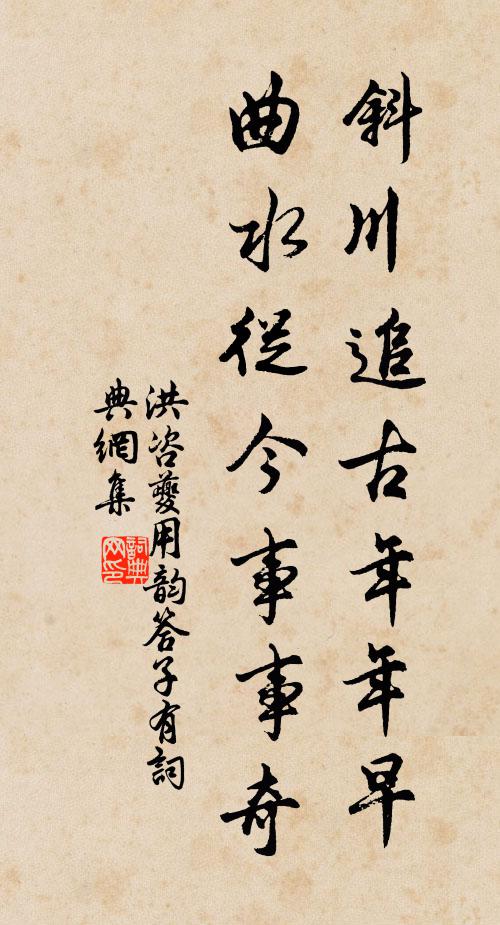 斜川追古年年早
曲水從今事事奇
洪咨夔用韵答子有詞
典網集
詞典
网印